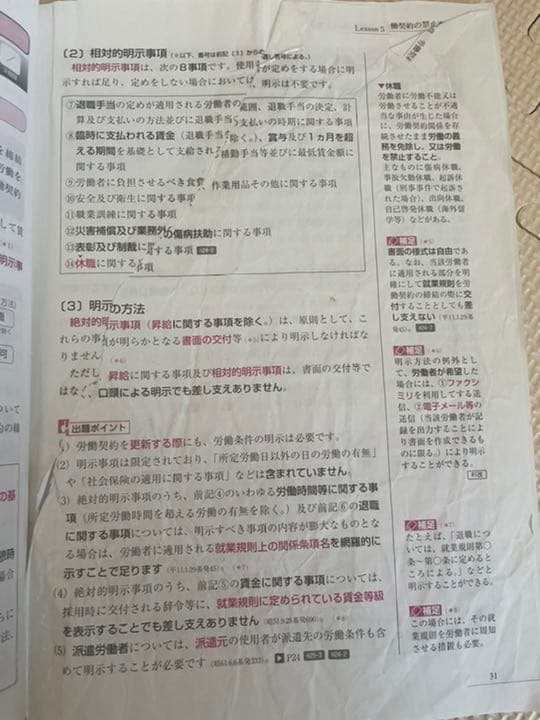 Lesson 5
働契約の禁止
(2) 相対的明示事項 (※以下、番号は前記(1)からの通し番号による。)
相対的明示事項は、次の8事項です。使用者が定めをする場合に明
示すれば足り、定めをしない場合においては、明示は不要です。
⑦退職手当の定めが適用される労働者の範囲、退職手当の決定、計
算及び支払いの方法並びに支払いの時期に関する事項
⑧臨時に支払われる賃金(退職手当を除く。)、賞与及び1ヵ月を超
える期間を基礎として支給される 補勤手当等並びに最低賃金額に
関する事項
⑨労働者に負担させるべき食費、作業用品その他に関する事項
⑩安全及び衛生に関する事項
⑪職業訓練に関する事項
⑫災害補償及び業務外の傷病扶助に関する事項
⑬表彰及び制裁に関する事項
⑭休職に関する事項
(3) 明示の方法
絶対的明示事項(昇給に関する事項を除く。)は、原則として、こ
れらの事項が明らかとなる書面の交付等(*5)により明示しなければな
りません (*6)
ただし、昇給に関する事項及び相対的明示事項は、書面の交付等で
はなく、口頭による明示でも差し支えありません。
出題ポイント
(1) 労働契約を更新する際にも、労働条件の明示は必要です。
(2) 明示事項は限定されており、「所定労働日以外の日の労働の有無」
や「社会保険の適用に関する事項」などは含まれていません。
(3) 絶対的明示事項のうち、前記④のいわゆる労働時間等に関する事
項(所定労働時間を超える労働の有無を除く。)及び前記⑥の退職
に関する事項については、明示すべき事項の内容が膨大なものとな
る場合は、労働者に適用される就業規則上の関係条項名を網羅的に
示すことで足ります (平11.1.29基発45)。(*7)
(4) 絶対的明示事項のうち、前記⑤の賃金に関する事項については、
採用時に交付される辞令等に、就業規則に定められている賃金等級
を表示することでも差し支えありません (昭51.9.28基発690)。(*8)
(5) 派遣労働者については、派遣元の使用者が派遣先の労働条件も含
めて明示することが必要です (昭61.6.6基発333)。 ▶P24
▼休職
労働者に労働不能又は
労働させることが不適
当な事由が生じた場合
に、労働契約関係を存
続させたまま労働の義
務を免除し、又は労働
を禁止すること。
主なものに傷病休職、
事故欠勤休職、起訴休
職(刑事事件で起訴さ
れた場合)、出向休職、
自己啓発休職(海外留
学等)などがある。
補足 (*5)
書面の様式は自由であ
る。なお、当該労働者
に適用される部分を明
確にして就業規則を労
働契約の締結の際に交
付することとしても差
し支えない (平11.1.29基
発45)。
補足 (*6)
明示方法の例外とし
て、労働者が希望した
場合には、①ファクシ
ミリを利用してする送
信、②電子メール等の
送信(当該労働者が記
録を出力することによ
り書面を作成できるもの
に限る。)により明示
することができる。
補足 (*7)
たとえば、「退職につ
いては、就業規則第〇
条～第〇条に定めると
ころによる。」などと
明示することができる。
補足 (*8)
この場合には、その就
業規則を労働者に周知
させる措置も必要。
31